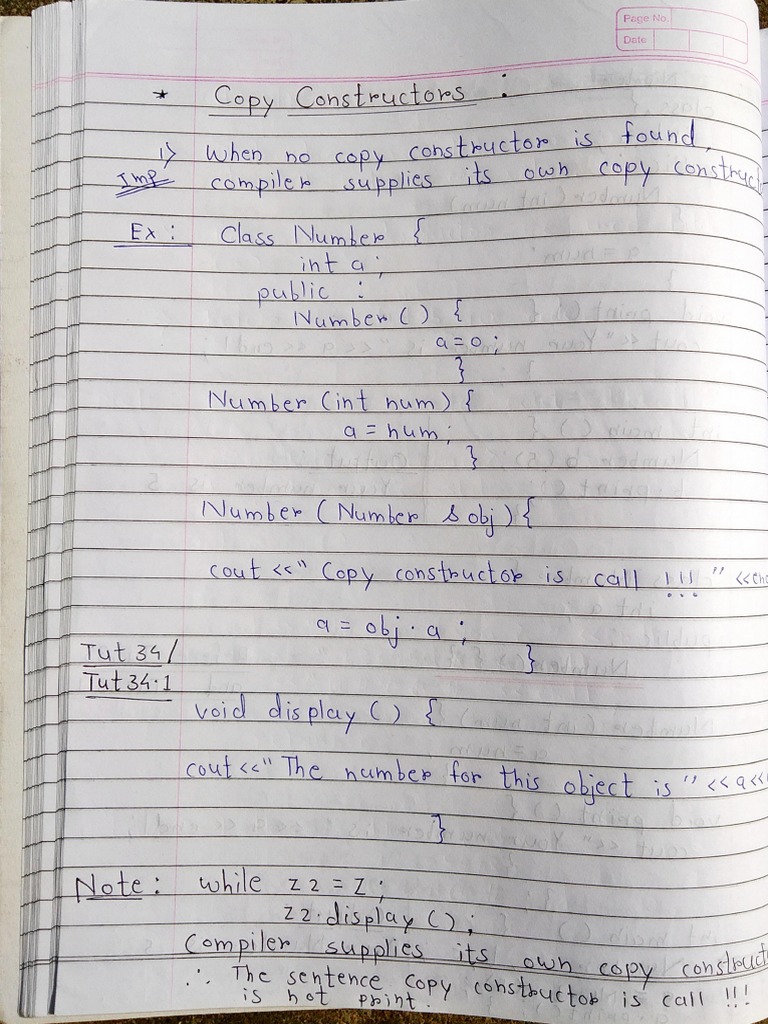 Page No.
Date
* Copy Constructors :
1) When no copy constructor is found,
Imp compiler supplies its own copy construct
Ex : Class Number {
int a ;
public :
Number ( ) {
a = 0 ;
}
Number (int num) {
a = num ;
}
Number ( Number & obj ) {
cout << " Copy constructor is call !!! " <<
a = obj . a ;
}
Tut 34 /
Tut 34.1
void display ( ) {
cout << " The number for this object is " << a <<
}
Note : while z2 = z ;
z2 . display ( ) ;
Compiler supplies its own copy construct
∴ The sentence copy constructor is call !!!
is not print .